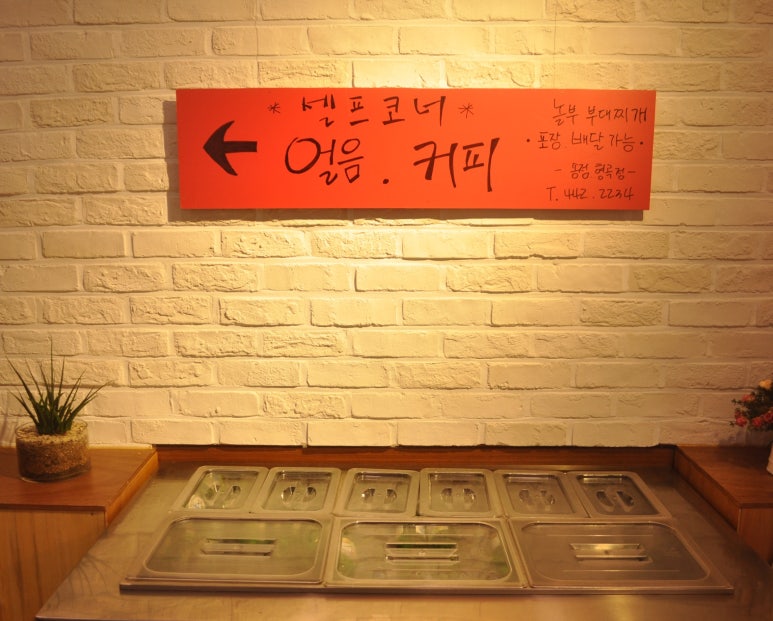 * 셀프코너 *
얼음 . 커피
놀부 부대찌개
· 포장. 배달 가능 ·
형곡점 -
T. 442. 2234